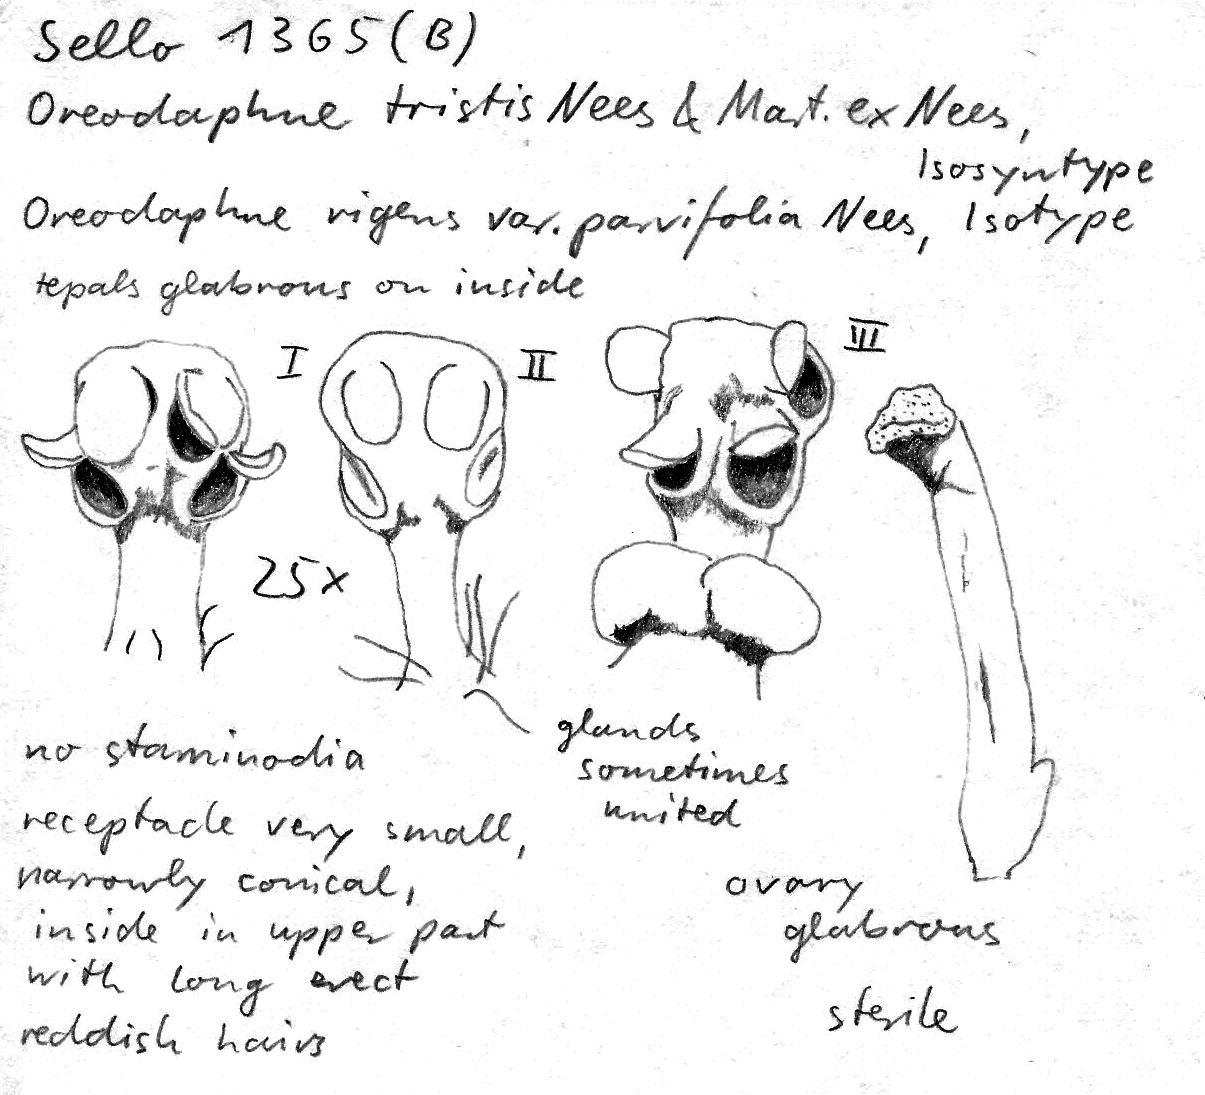 Sello 1365 (B)
Oreodaphne tristis Nees & Mart. ex Nees,
Isosyntype
Oreodaphne rigens var. parvifolia Nees, Isotype
tepals glabrous on inside
I
II
III
25x
glands
sometimes
united
no staminodia
receptacle very small,
narrowly conical,
inside in upper part
with long erect
reddish hairs
ovary
glabrous
sterile